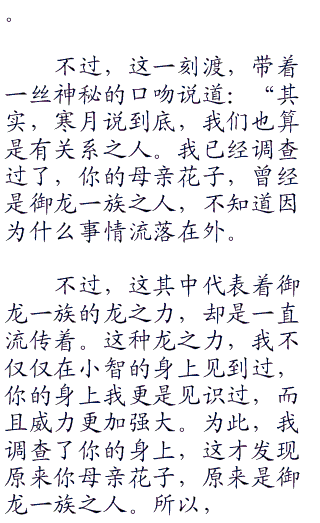 。
不过，这一刻渡，带着
一丝神秘的口吻说道：“其
实，寒月说到底，我们也算
是有关系之人。我已经调查
过了，你的母亲花子，曾经
是御龙一族之人，不知道因
为什么事情流落在外。
不过，这其中代表着御
龙一族的龙之力，却是一直
流传着。这种龙之力，我不
仅仅在小智的身上见到过，
你的身上我更是见识过，而
且威力更加强大。为此，我
调查了你的身上，这才发现
原来你母亲花子，原来是御
龙一族之人。所以，